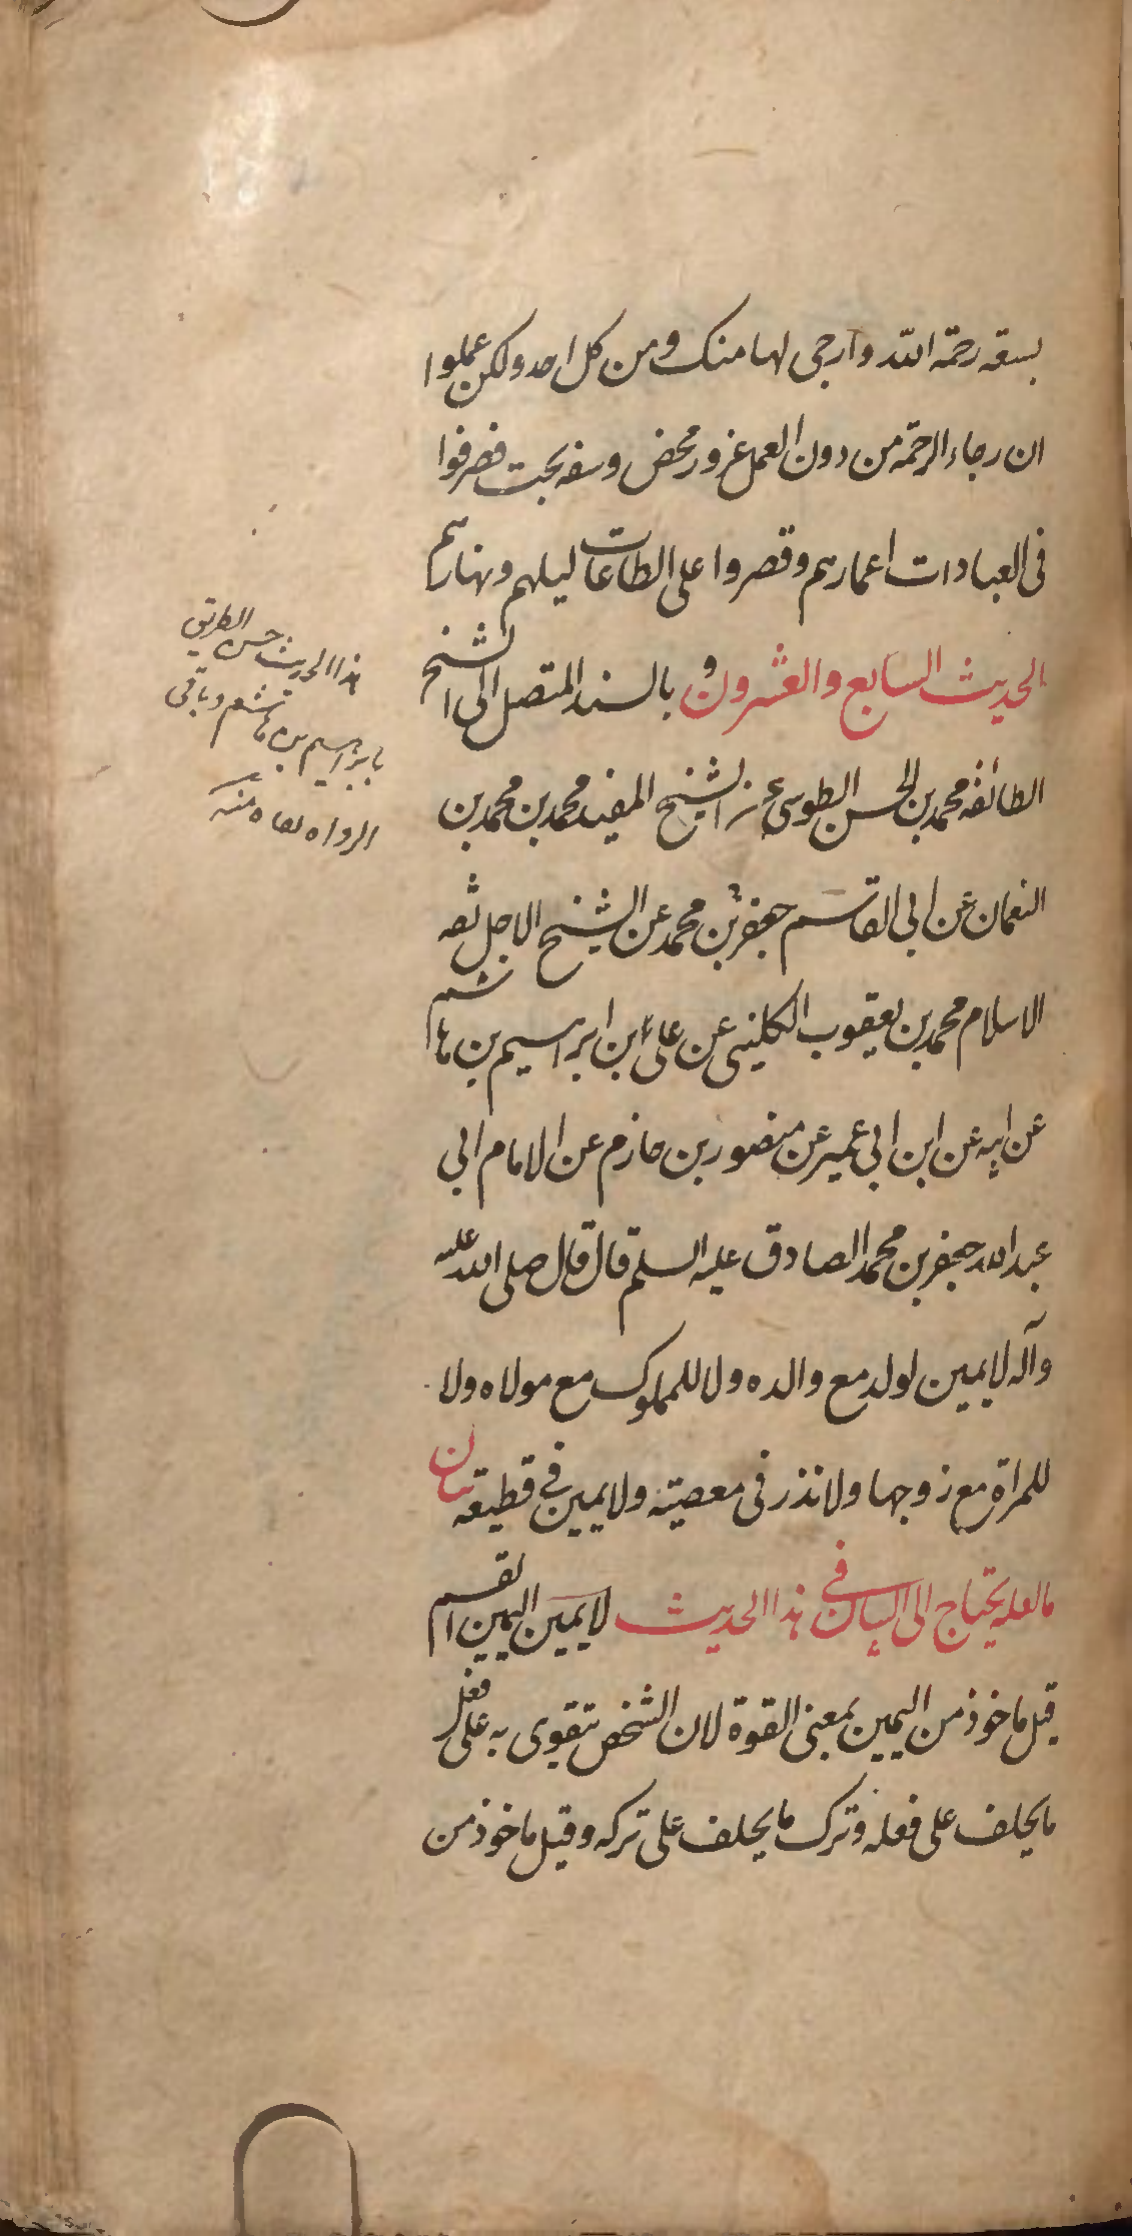 بسعة رحمة الله وارجى لها منك ومن كل احد ولكن عملوا
ان رجاء الرحمة من دون العمل غرور محض وسفه بحت فصرفوا
فى العبادات اعمارهم وقصروا على الطاعات ليلهم ونهارهم
الحديث السابع والعشرون وبالسند المتصل الى الشيخ
الطائفه محمد بن الحسن الطوسى عن الشيخ المفيد محمد بن محمد بن
النعمان عن ابى القاسم جعفر بن محمد عن الشيخ الاجل ثقه
الاسلام محمد بن يعقوب الكلينى عن على ابن ابراهيم بن هاشم
عن ابيه عن ابن ابى عمير عن منصور بن حازم عن الامام ابى
عبد الله جعفر بن محمد الصادق عليه السلم قال قال صلى الله عليه
وآله لا يمين لولد مع والده ولا للمملوك مع مولاه ولا
للمراة مع زوجها ولا نذر فى معصيته ولا يمين فى قطيعه بيان
ما لعله يحتاج الى البيان فى هذا الحديث لا يمين اليمين القسم
قيل ماخوذ من اليمين بمعنى القوة لان الشخص يتقوى به على فعل
ما يحلف على فعله وترك ما يحلف على تركه وقيل ماخوذ من
هذا الحديث حسن الطريق
بابراهيم بن هاشم وباقى
الرواه ثقاه منه